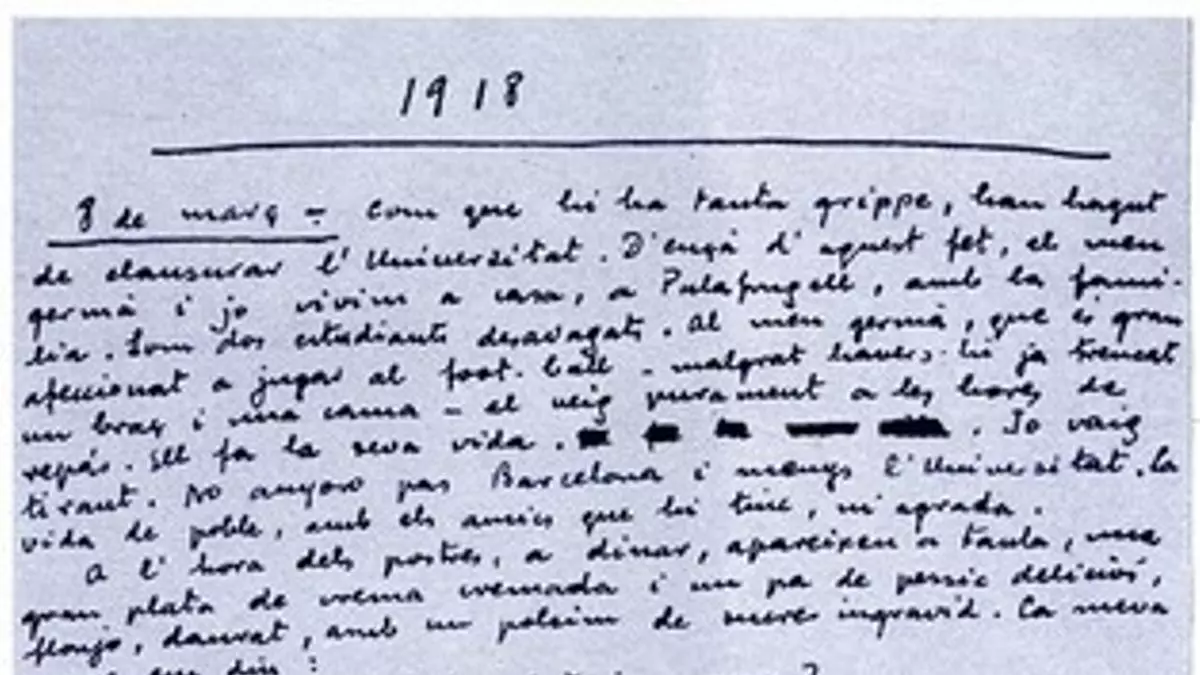 1918
8 de març - Com que hi ha tanta grippe, han hagut
de clausurar l'Universitat. D'ençà d'aquest fet, el meu
germà i jo vivim a casa, a Palafrugell, amb la famí-
lia. Som dos estudiants desvagats. Al meu germà, que és gran
afeccionat a jugar al foot-ball - malgrat havers-hi ja trencat
un braç i una cama - el veig purament a les hores de
repàs. Ell fa la seva vida. Jo vaig
tirant. No anyoro pas Barcelona i menys l'Universitat. La
vida de poble, amb els amics que hi tinc, m'agrada.
A l'hora dels postres, a dinar, apareixen a taula, una
gran plata de crema cremada i un pa de pessic deliciós,
flonjo, daurat, amb un polsim de sucre ingravid. La meva
em diu:
?